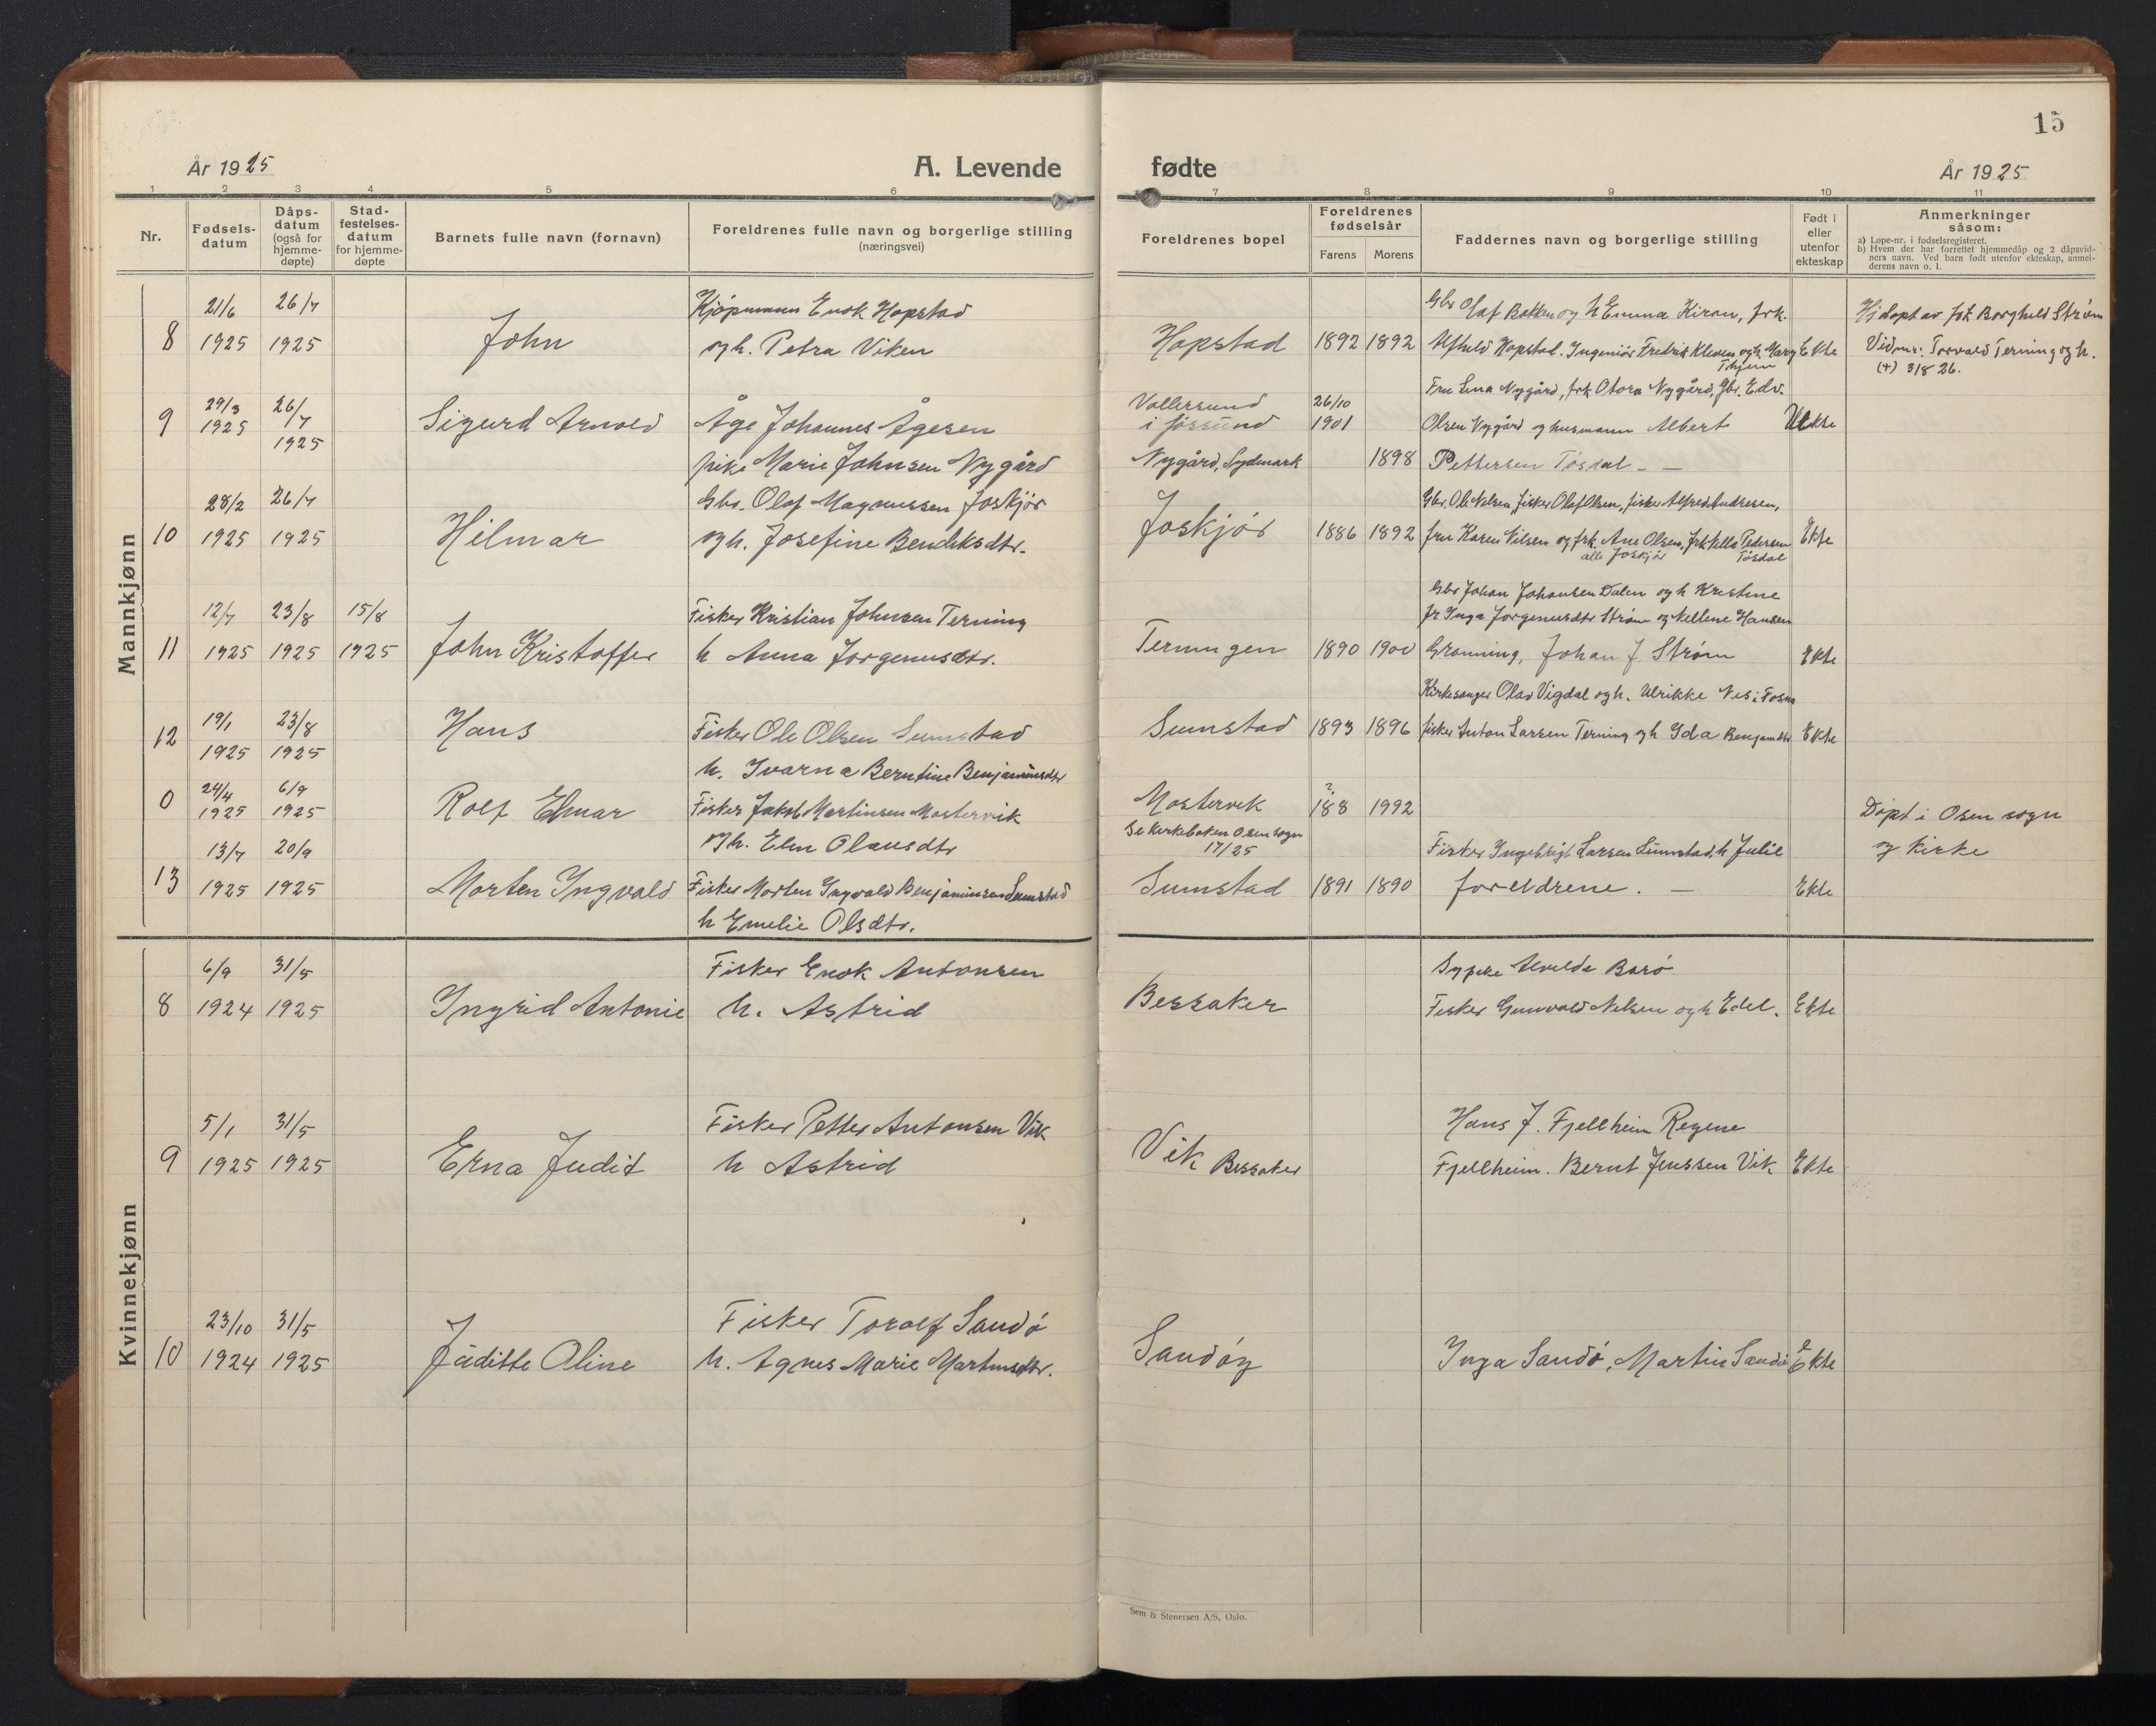 15
År 1925
A. Levende
fødte
År 1925
1 2 3 4 5 6 7 8 9 10 11
Nr.
Fødsels-
datum
Dåps-
datum
(også for
hjemme-
døpte)
Stad-
festelses-
datum
for hjemme-
døpte
Barnets fulle navn (fornavn)
Foreldrenes fulle navn og borgerlige stilling
(næringsvei)
Foreldrenes bopel
Foreldrenes
fødselsår
Farens Morens
Faddernes navn og borgerlige stilling
Født i
eller
utenfor
ekteskap
Anmerkninger
såsom:
a) Løpe-nr. i fødselsregisteret.
b) Hvem der har forrettet hjemmedåp og 2 dåpsvid-
ners navn. Ved barn født utenfor ekteskap, anmel-
derens navn o. l.
Mannkjønn
21/6 26/7 Kjøpmann Enok Hopstad Gbr Olaf Bakken og h Emma Kiran, frk. Hjdøpt av frk Borghild Strøm
8 1925 1925 John og h. Petra Viken Hopstad 1892 1892 Alfhild Hopstad. Ingeniør Fredrik Kleven og h. Marg Ekte Vidner: Torvald Terning og h.
Thjem (+) 3/8 26.
Fru Lina Nygård, frk Otora Nygård, Gbr. Edv.
29/3 26/7 Vallersund 26/10
9 1925 1925 Sigurd Arnold Åge Johannes Ågesen i Jøssund 1901 Olsen Nygård og husmann Albert Uekte
pike Marie Johnsen Nygård Nygård, Sydmark 1898 Pettersen Tøsdal - -
28/2 26/7 Gbr. Olaf Magnussen Joskjør Gbr. Ole Nelsen, fisker Olaf Olsen, fisker Alfred Andresen,
10 1925 1925 Hilmar og h. Josefine Bendiksdtr. Joskjør 1886 1892 fru Karen Nilsen og frk. Ane Olsen, frk Pella Pedersen Ekte
alle Joskjør Tøsdal
Gbr Johan Johansen Dalen og h Kristine
12/7 23/8 15/8 Fisker Kristian Johnsen Terning fr Inga Jørgenusdtr Strøm og Nellene Hansen
11 1925 1925 1925 John Kristoffer h Anna Jørgenusdtr. Terningen 1890 1900 Grønning, Johan J. Strøm Ekte
Kirkesanger Olav Vigdal og h. Ulrikke Nes i Fosna
19/1 23/8
12 1925 1925 Hans Fisker Ole Olsen Sumstad Sumstad 1893 1896 fisker Anton Larsen Terning og h Ida Benjamdtr Ekte
h. Ivarna Berntine Benjaminsdtr
24/4 6/9 ?
0 1925 1925 Rolf Elmar Fisker Jakob Martinsen Mostervik Mostervik 188 1992 Døpt i Osen sogn
og h. Elen Olausdtr Se Kirkeboken Osen sogn og kirke
17/25
13/7 20/9 Fisker Ingebrigt Larsen Sumstad, h Julie
13 1925 1925 Morten Ingvald Fisker Morten Ingvald Benjaminsen Sumstad Sumstad 1891 1890 foreldrene. - Ekte
h Emelie Olsdtr.
Kvinnekjønn
6/9 31/5 Fisker Enok Antonsen Sypike Alvilde Barø
8 1924 1925 Ingrid Antonie h. Astrid Bessaker Fisker Gunvald Nelsen og h Edel. Ekte
5/1 31/5 Fisker Petter Antonsen Vik Hans J. Fjellheim Regine
9 1925 1925 Erna Judit h Astrid Vik Bessaker Fjellheim. Bernt Jenssen Vik Ekte
23/10 31/5 Fisker Toralf Sandø
10 1924 1925 Juditte Oline h. Agnes Marie Martinsdtr. Sandøy Inga Sandø, Martin Sandø Ekte
Sem & Stenersen A/S, Oslo.